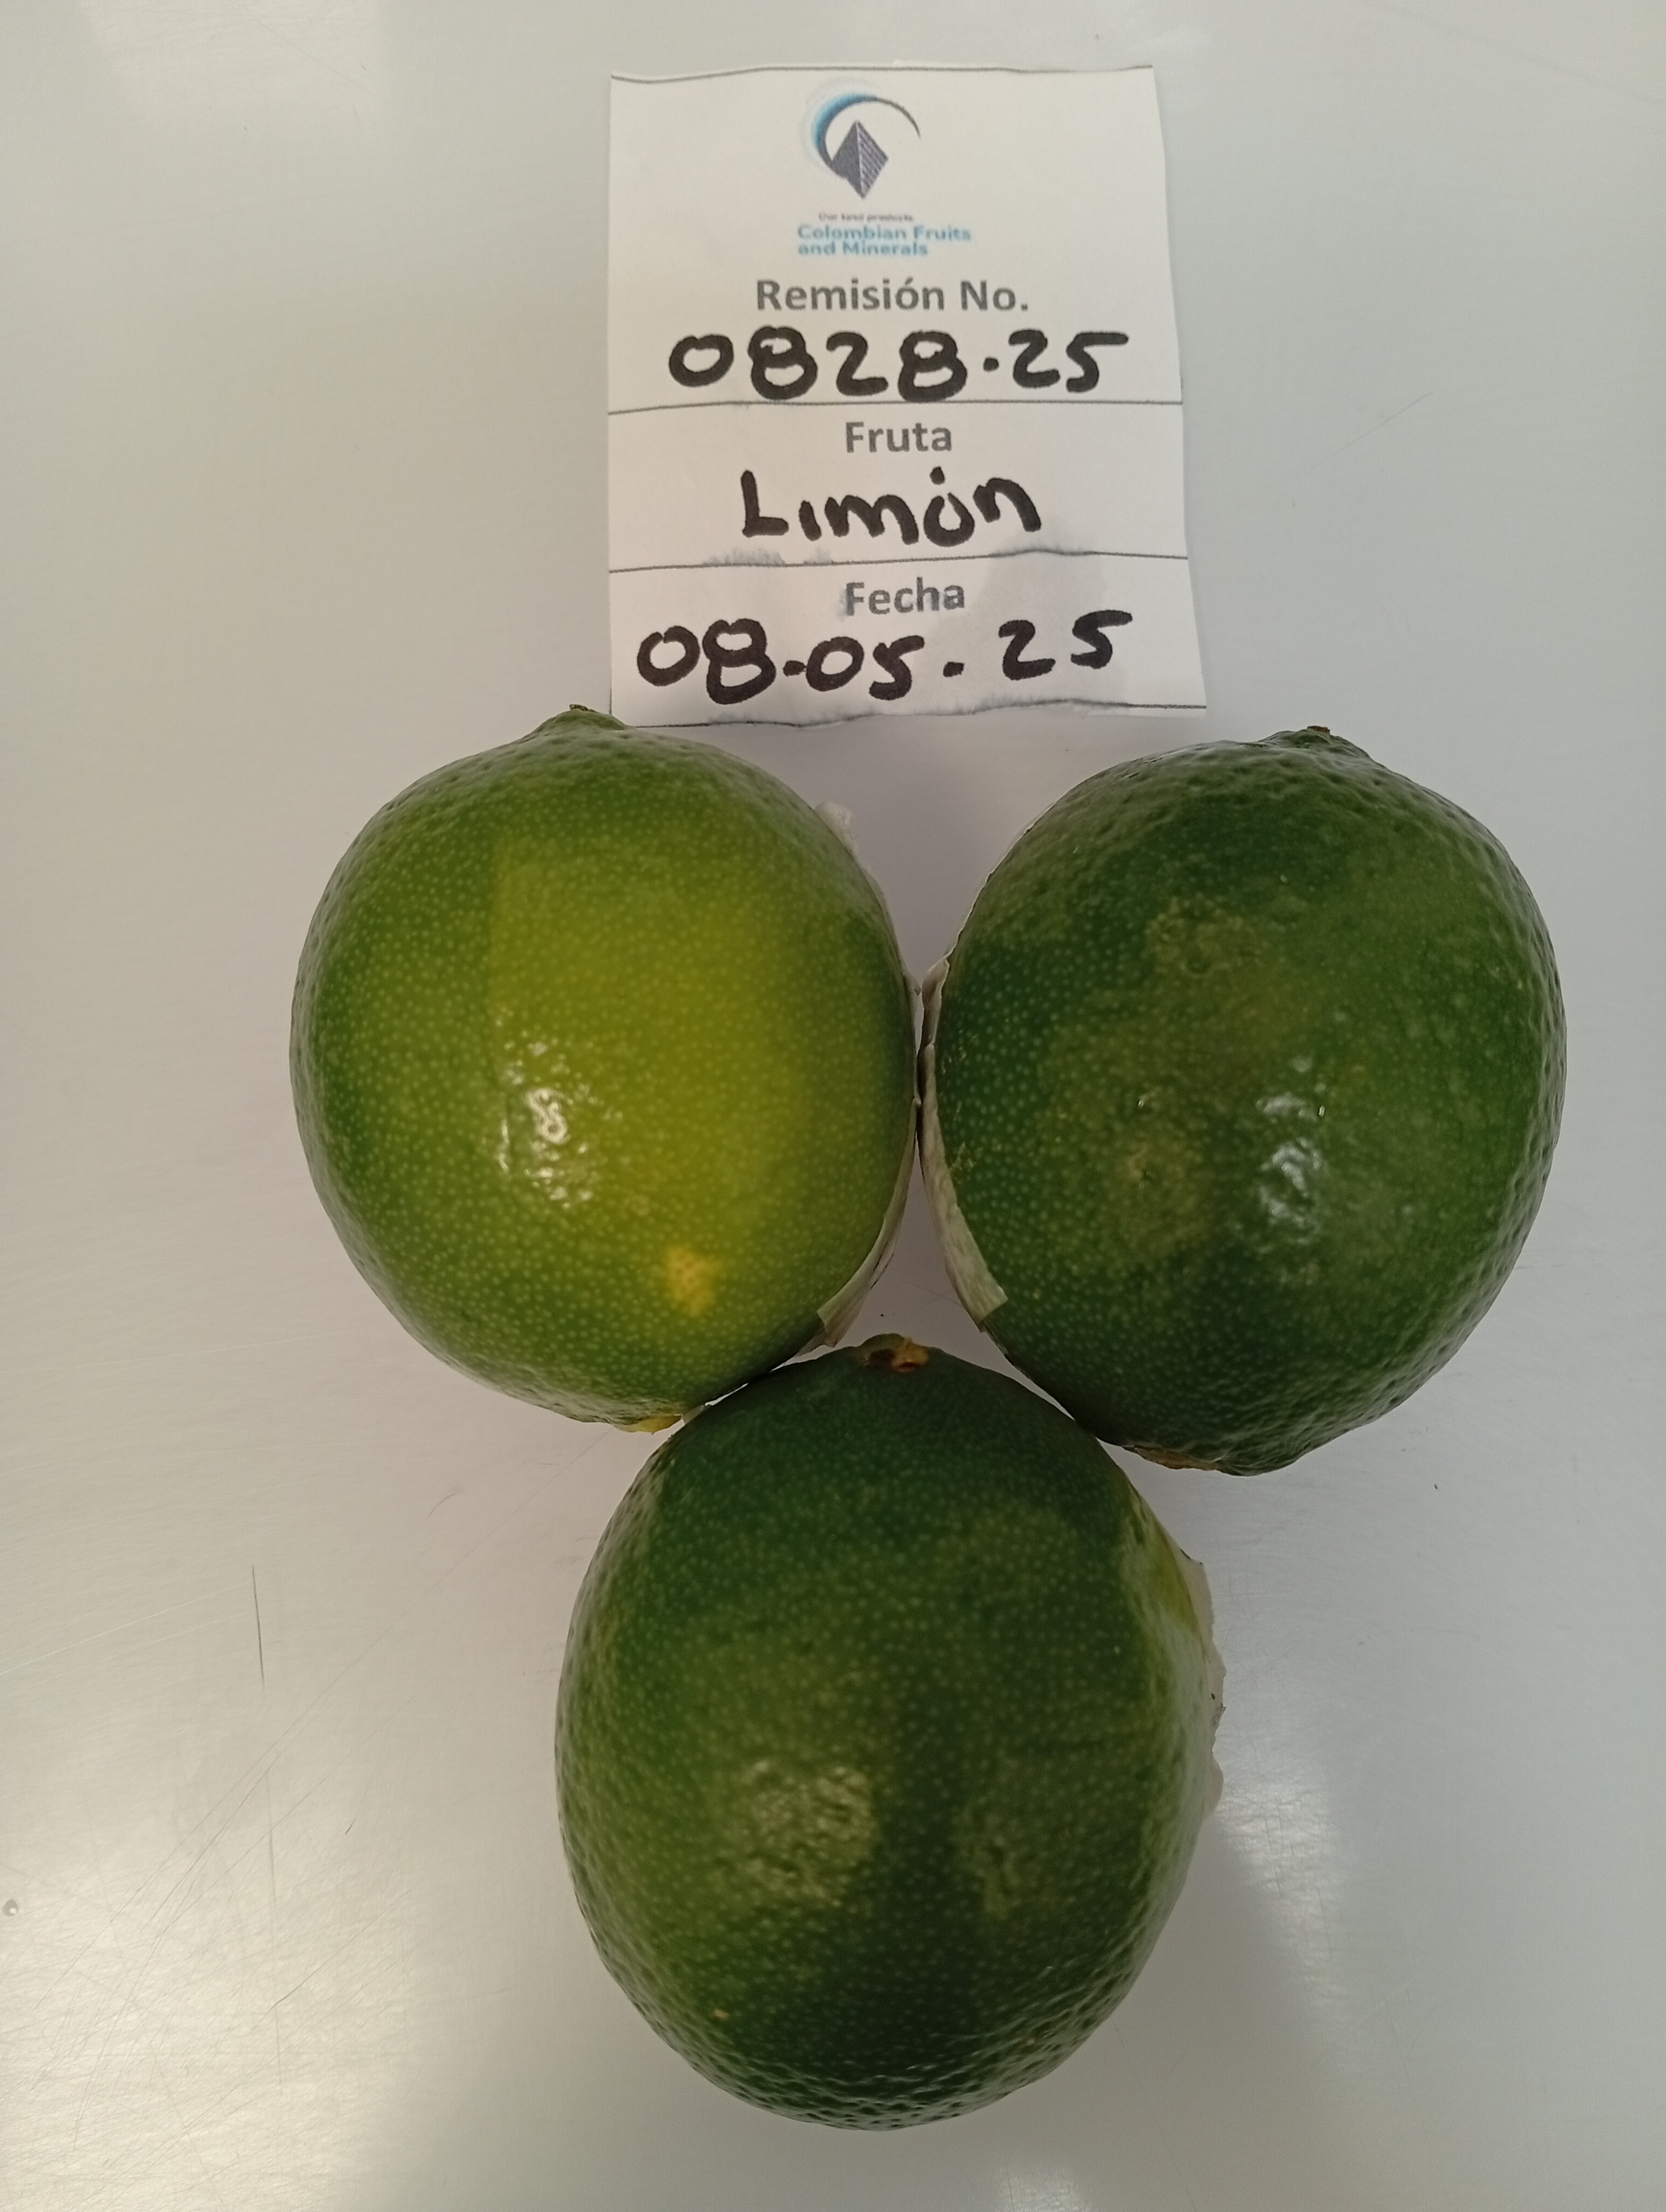 Our land products
Colombian Fruits
and Minerals
Remisión No.
0828.25
Fruta
Limón
Fecha
08.05.25